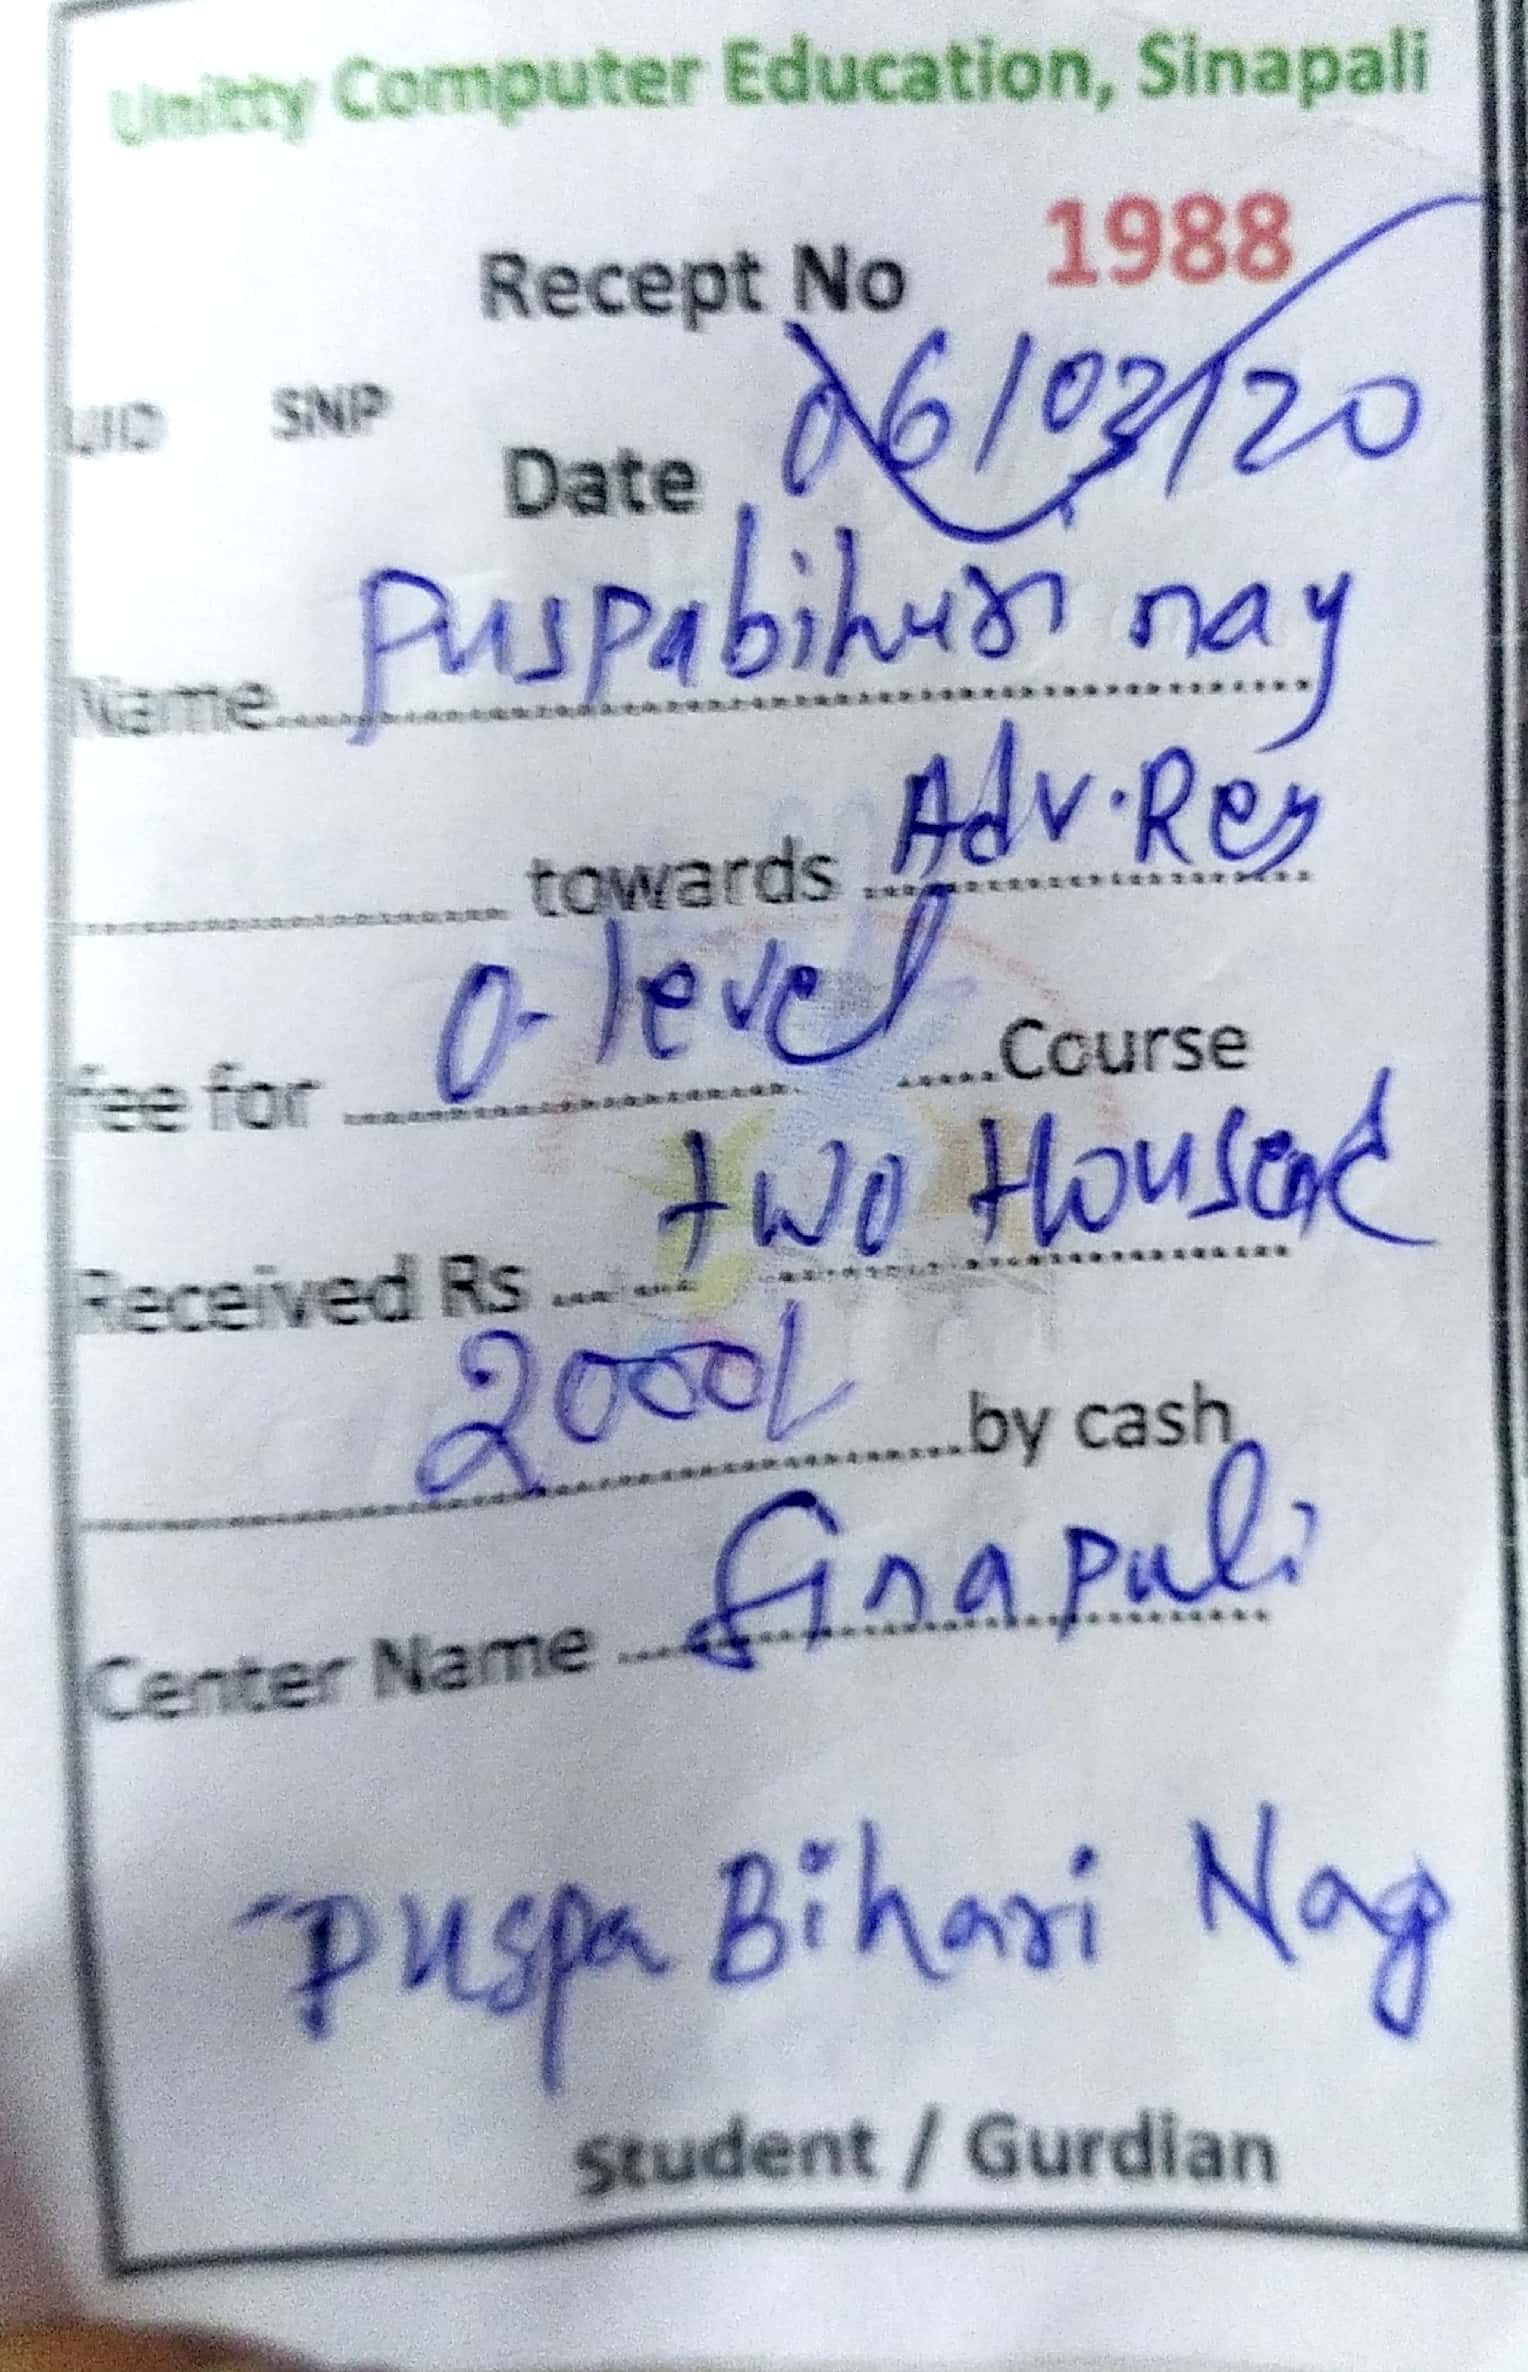 Unitty Computer Education, Sinapali
Recept No 1988
UID SNP
Date 06/03/20
Name Puspabihari nag
towards Adv. Reg
fee for O-level Course
Received Rs two thousend
2000/- by cash
Center Name Sinapali
Puspa Bihari Nag
Student / Gurdian